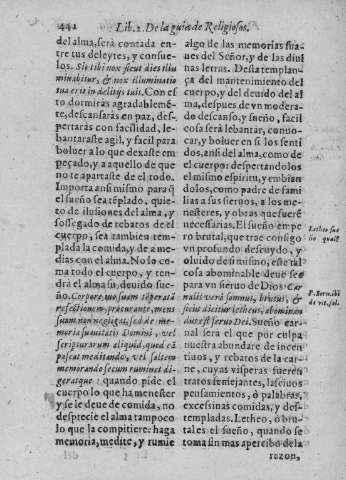 442 Lib. 2. De la guia de Religiosos.
del alma, será contada en-
tre tus deleytes, y consue-
los. Sic tibi nox sicut dies illu
minabitur, & nox illuminatio
tua erit in delitijs tuis. Con es
to dormiràs agradableme-
te, descansaràs en paz, des-
pertaràs con facilidad, le-
bantaraste agil, y facil para
boluer a lo que dexaste em
peçado, y a aquello de que
no te apartaste de el todo.
Importa ansi mismo para q̃
el sueño sea tẽplado, quie-
to de ilusiones del alma, y
sossegado de rebatos de el
cuerpo, sea tambien tem-
plada la comida, y de a me-
dias con el alma. No lo co-
ma todo el cuerpo, y ten-
drá el alma su deuido sue-
ño. Corpore, quo suam tẽperatã
refectionem, procurante, mens
suam non negligat, sed de me-
moria suauitatis Domini, vel
scripturarum aliquid, quod eã
pascat meditando, vel saltem
memorando secum ruminet di-
geratque: quando pide el
cuerpo lo que ha menester
y se le deue de comida, no
desprecie el alma tampoco
lo que la competiere: haga
memoria, medite, y rumie
algo de las memorias sua-
ues del Señor, y de las diui
nas letras. Desta templan-
ça del mantenimiento del
cuerpo, y del deuido del al
ma, despues de vn modera-
do descanso, y sueño, facil
cosa será lebantar, conuo-
car, y boluer en si los senti
dos, ansi del alma, como de
el cuerpo: despertandolos
el mismo espiritu, y embian
dolos, como padre de fami
lias a sus sieruos, a los me-
nesteres, y obras que fuerẽ
necesarias. El sueño empe
ro brutal, que trae consigo
vn profundo descuydo, y
oluido de si mismo, este tal
cosa abominable deue ser
para vn sieruo de Dios. Car
nalis verò somnus, brutus, &
sicut dicitur Letheus, abominan
dus est seruo Dei. Sueño car-
nal serà el que por culpa
nuestra abundare de incen
tiuos, y rebatos de la car-
ne, cuyas visperas fueren
tratos semejantes, lasciuos
pensamientos, ò palabras,
excessiuas comidas, y des-
templadas. Letheo, ò bru-
tal es el sueño, quando se
toma sin mas apercibo de la
razon,
Letheo sue
ño qual?
P. Bern. ibi
de vit. sol.